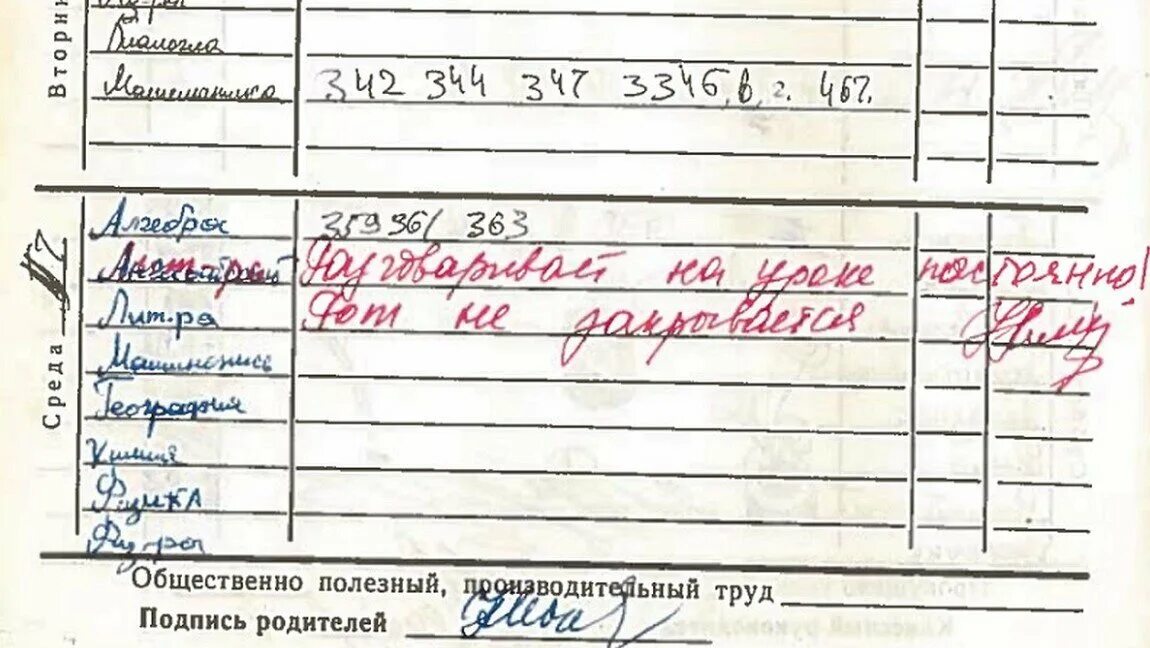 Вторни
Биология
Математика 342 344 347 3346, в, г. 467.
Среда 17
Алгебра 359 361 363
Разговаривает на уроке постоянно!
Лит-ра Рот не закрывается
Машинопись
География
Химия
Физика
Физ-ра
Общественно полезный, производительный труд
Подпись родителей